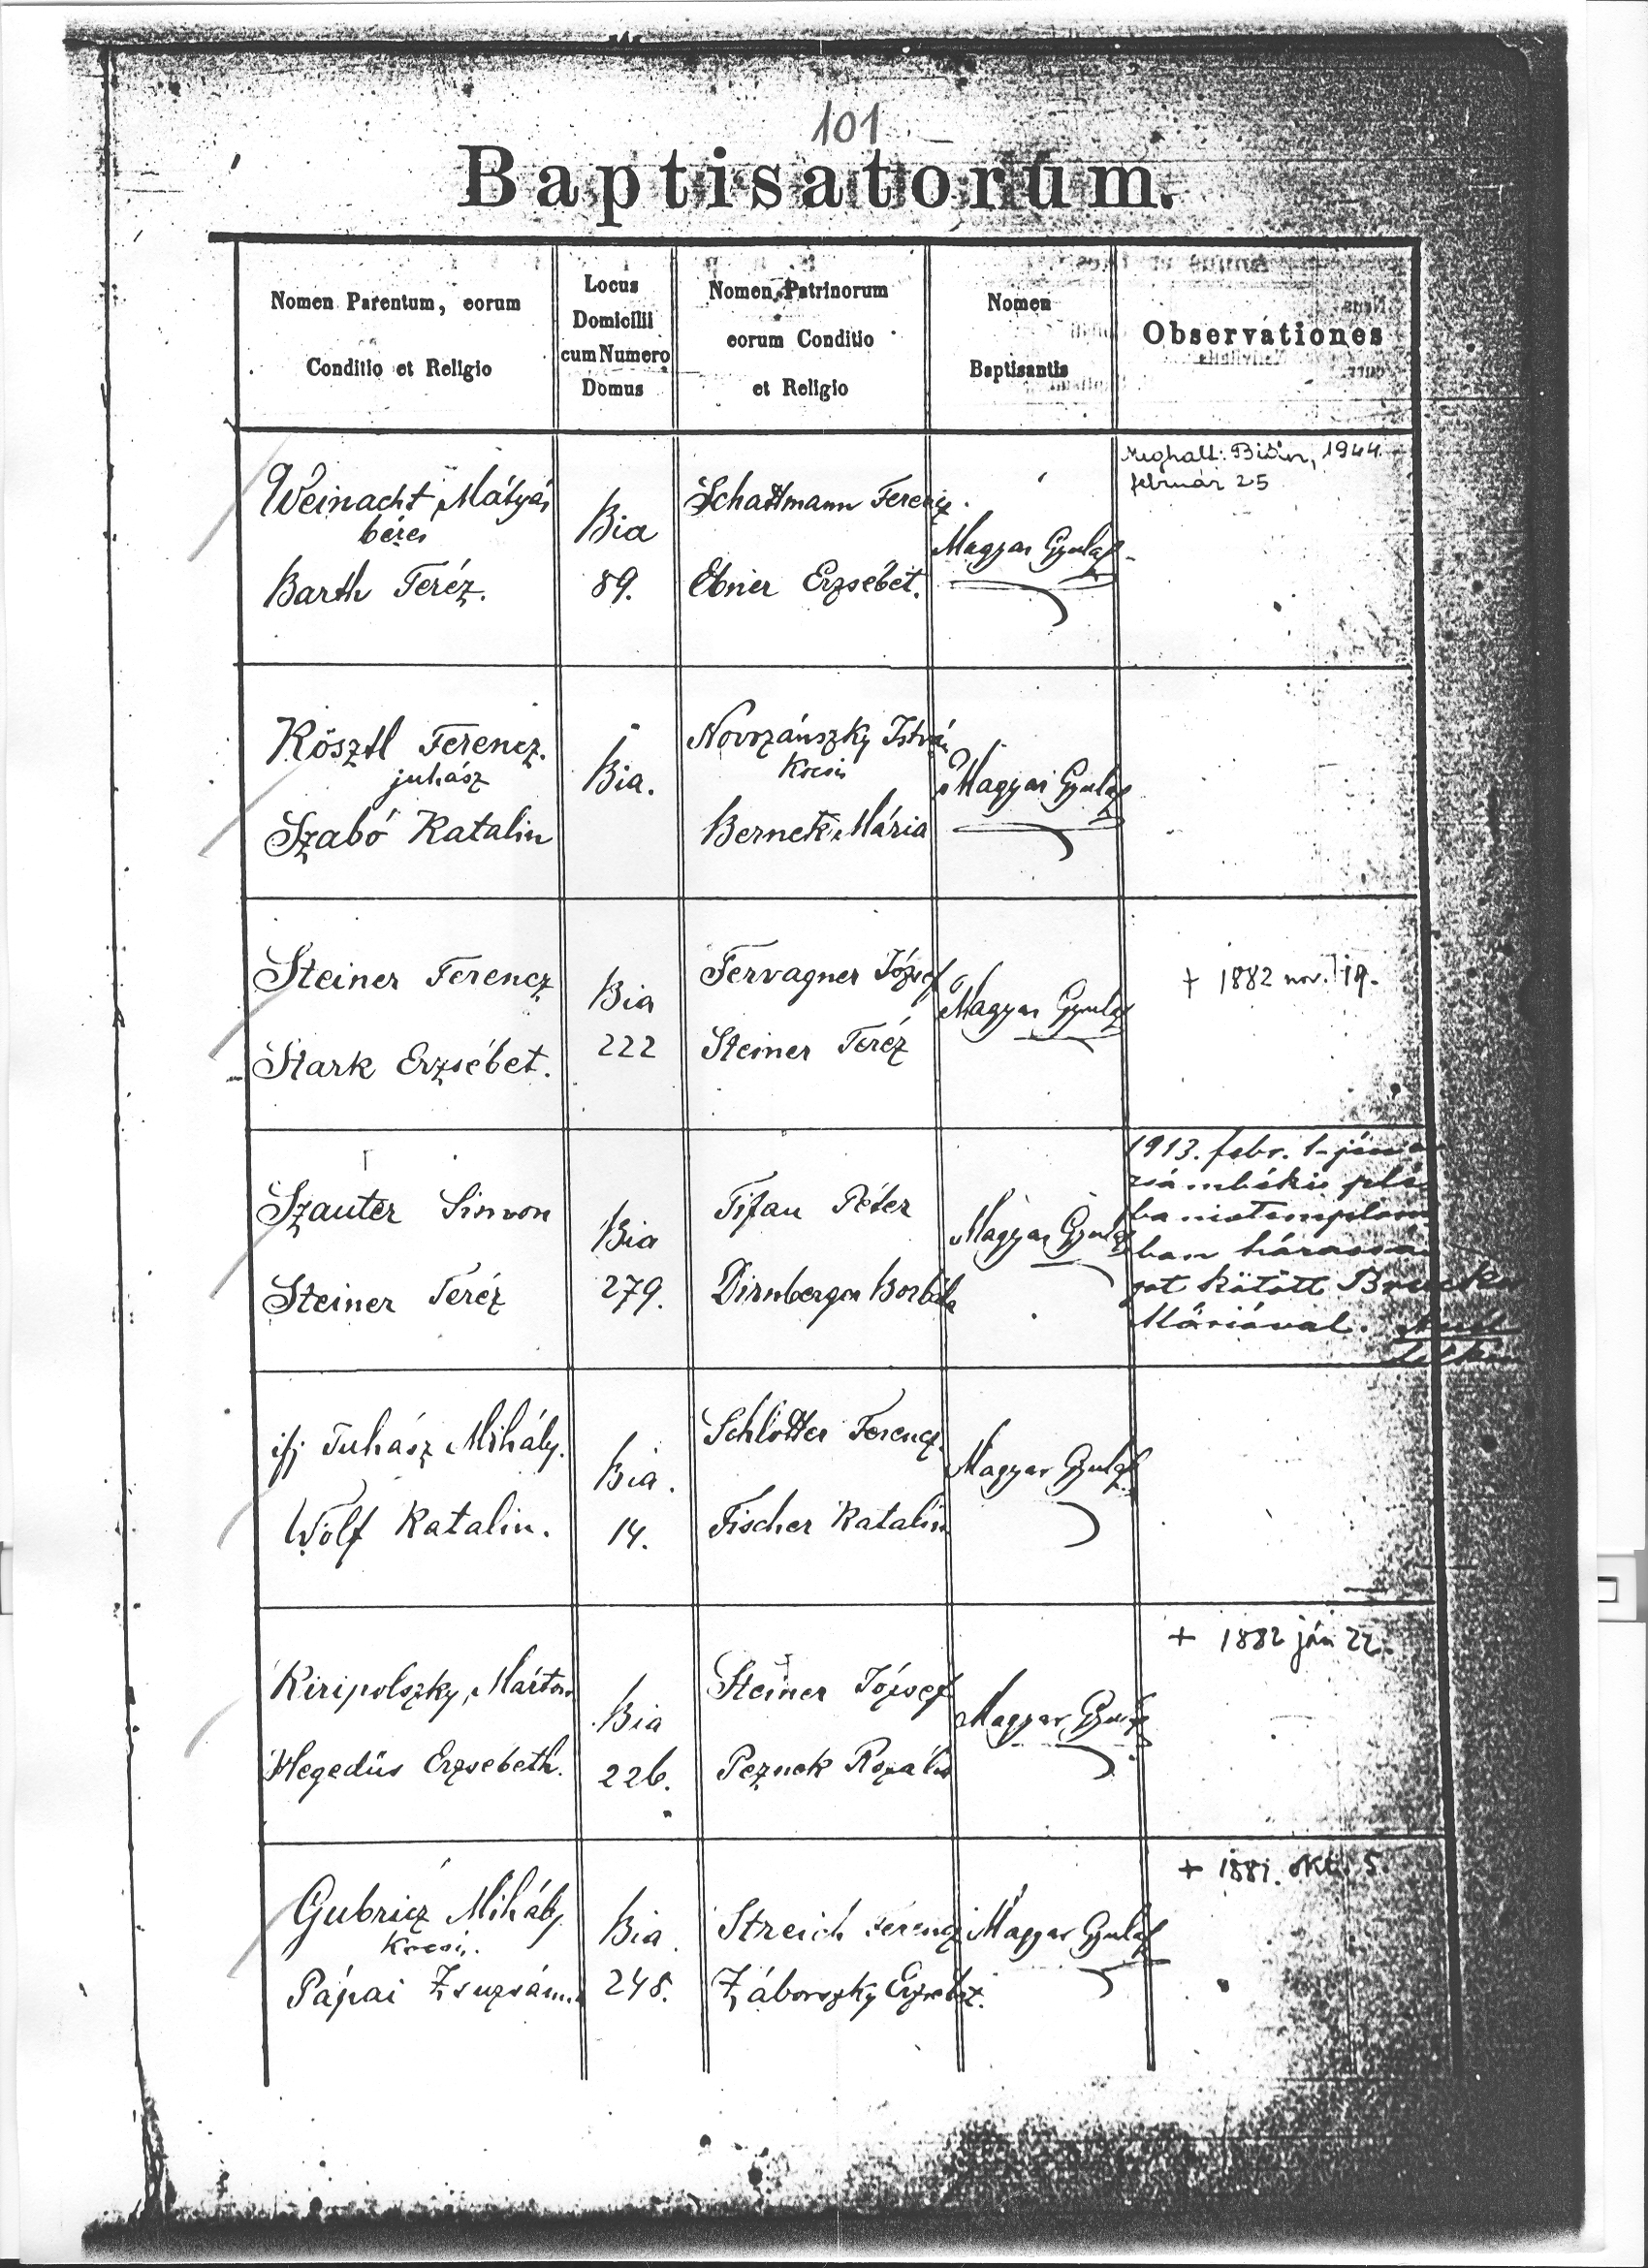 101
Baptisatorum.
Nomen Parentum, eorum
Conditio et Religio
Locus
Domicilii
cum Numero
Domus
Nomen Patrinorum
eorum Conditio
et Religio
Nomen
Baptisantis
Observationes
Weinacht Mátyás
béres
Barth Teréz.
Bia
89.
Schattmann Ferencz
Ebner Erzsébet.
Magyar Gyula
meghalt: Bián, 1944.
február 25
Kösztl Ferencz.
juhász
Szabó Katalin
Bia.
Novozánszky István
kocsis
Bernek Mária
Magyar Gyula
Steiner Ferencz
Stark Erzsébet.
Bia
222
Fervagner József
Steiner Teréz
Magyar Gyula
+ 1882 nov. 19.
Szauter Simon
Steiner Teréz
Bia
279.
Tifan Péter
Dirnberger Borbála
Magyar Gyula
1913. febr. 1-jén a
zsámbéki plé
bániatemplom
ban házassá
got kötött
Máriával.
ifj Juhász Mihály.
Wolf Katalin.
Bia.
14.
Schlotter Ferencz.
Fischer Katalin
Magyar Gyula
Kiripolszky Márton
Hegedüs Erzsebeth.
Bia
226.
Steiner József
Peznek Rozália
Magyar Gyula
+ 1882 ján 22.
Gubricz Mihály
kocsis.
Pápai Zsuzsánna
Bia.
248.
Streich Ferencz
Záborszky Erzsébet.
Magyar Gyula
+ 1881. okt. 5.